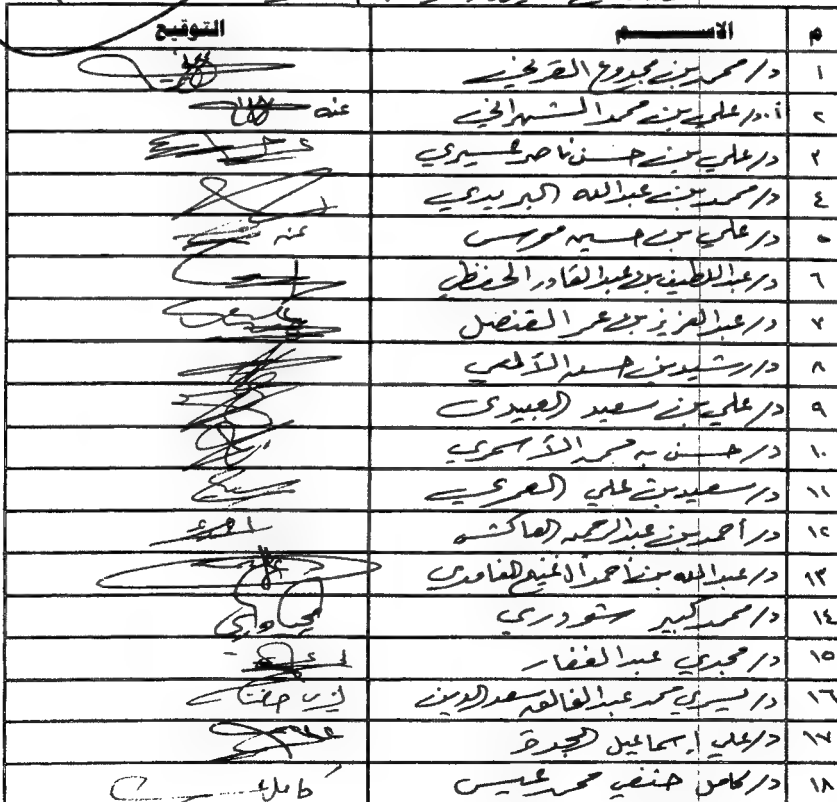 م الاســـــم التوقيع
١ د/ محمد بن مجدوع القرني
٢ أ.د/ علي بن محمد الشهراني عنه
٣ د/ علي بن حسن ناصر عسيري
٤ د/ محمد بن عبدالله البريدي
٥ د/ علي بن حسين موسى عنه
٦ د/ عبداللطيف بن عبدالقادر الحفظي
٧ د/ عبدالعزيز بن عمر القنصل
٨ د/ رشيد بن حسن الألمعي
٩ د/ علي بن سعيد العبيدي
١٠ د/ حسن بن محمد الأسمري
١١ د/ سعيد بن علي العمري
١٢ د/ أحمد بن عبدالرحمن العاكش
١٣ د/ عبدالله بن أحمد آل الغامدي
١٤ د/ محمد كبير شودري
١٥ د/ مجدي عبدالغفار
١٦ د/ يسري محمد عبدالخالق سعدالدين
١٧ د/ علي إسماعيل
١٨ د/ كامل حنفي محمد عيسى كامل